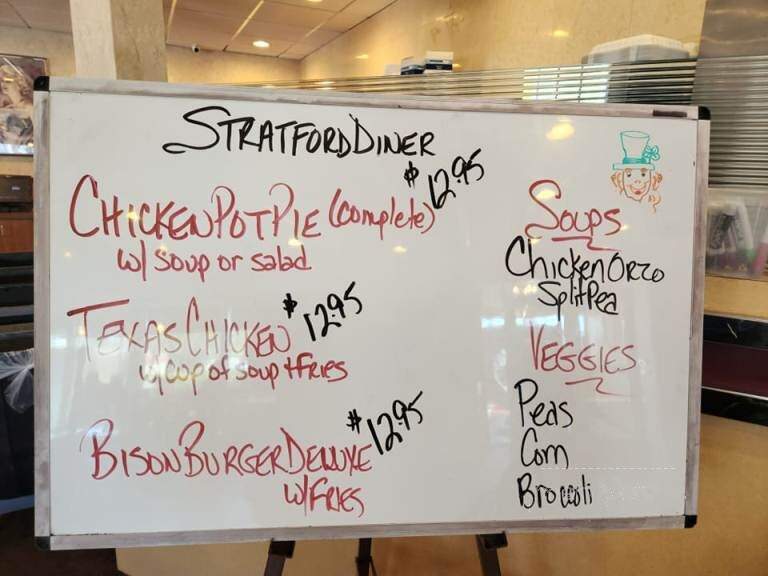 STRATFORD DINER
CHICKEN POT PIE (complete) $12.95
w/ soup or salad
TEXAS CHICKEN $12.95
w/ cup of soup + FRIES
BISON BURGER DELUXE $12.95
w/ FRIES
SOUPS
Chicken Orzo
Split Pea
VEGGIES
Peas
Corn
Broccoli